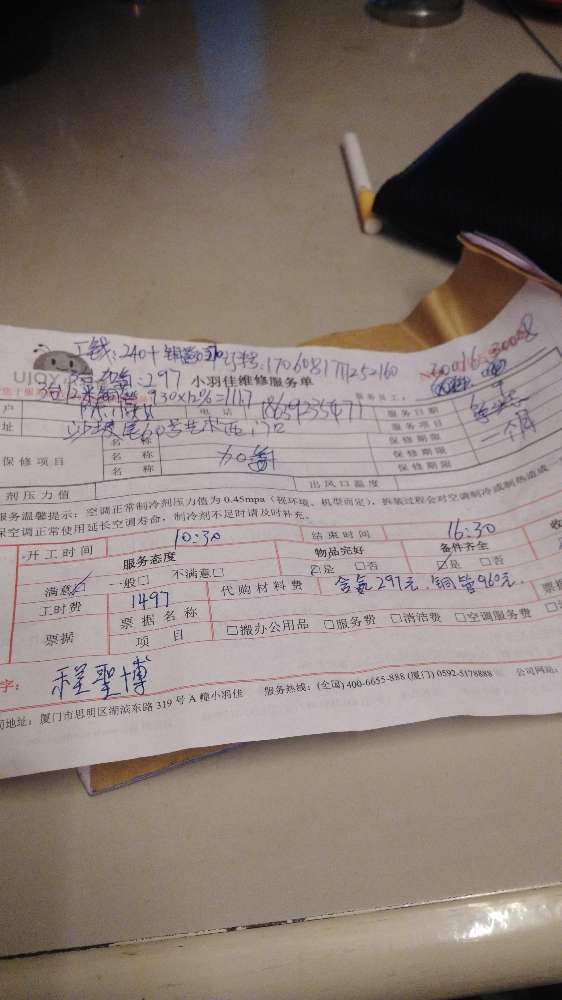 工钱:240+铜
订单号:1706081711252160
UIO
:297 小羽佳维修服务单
服务员工:
12米铜管 930×12%=1117
户
电话 18659235471 服务日期
址
60号艺术西门口 服务项目
保修项目 名称 加氟 保修期限 一个月
名称 保修期限
名称 保修期限
剂压力值 出风口温度
服务温馨提示:空调正常制冷剂压力值为0.45mpa(视环境、机型而定),拆装过程会对空调制冷或制热造成
保空调正常使用延长空调寿命,制冷剂不足时请及时补充。
开工时间 10:30 结束时间 16:30
服务态度 物品完好 备件齐全 收
满意☑ 一般□ 不满意□ ☑是 □否 ☑是 □否
工时费 1497 代购材料费 含氟297元.铜管960元.
票据 票据名称 票据
项目 □搬办公用品 □服务费 □清洁费 □空调服务费
字: 程聖博
司地址:厦门市思明区湖滨东路319号A幢小羽佳 服务热线:(全国)400-6655-888 (厦门)0592-5178888 公司网站: